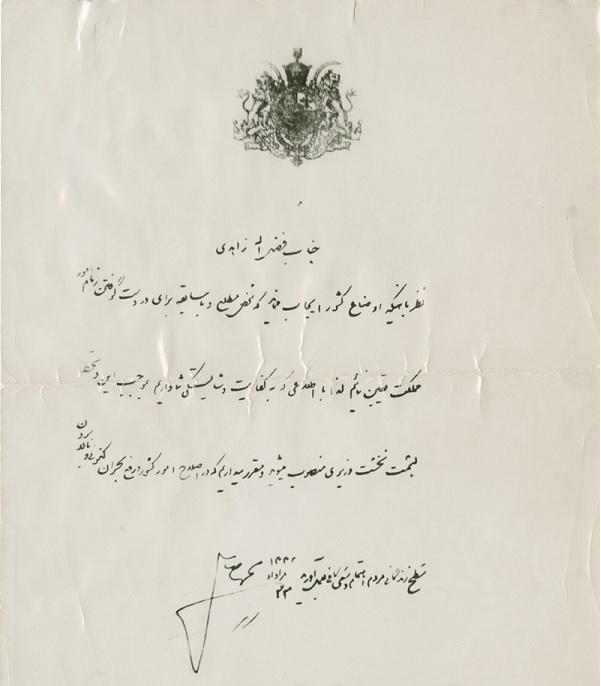 جناب فضل اله زاهدی
نظر باینکه اوضاع کشور ایجاب مینماید که شخص مطلع و با سابقه برای در دست گرفتن زمام امور
مملکت تعیین نمائیم لذا با اطلاعی که به کفایت و شایستگی شما داریم بموجب این دستخط
بسمت نخست وزیری منصوب میشوید و مقرر میداریم که در اصلاح امور کشور و رفع بحران کنونی و بالا بردن
سطح زندگانی مردم اهتمام و سعی کافی بعمل آورید
مرداد
۱۳۳۲